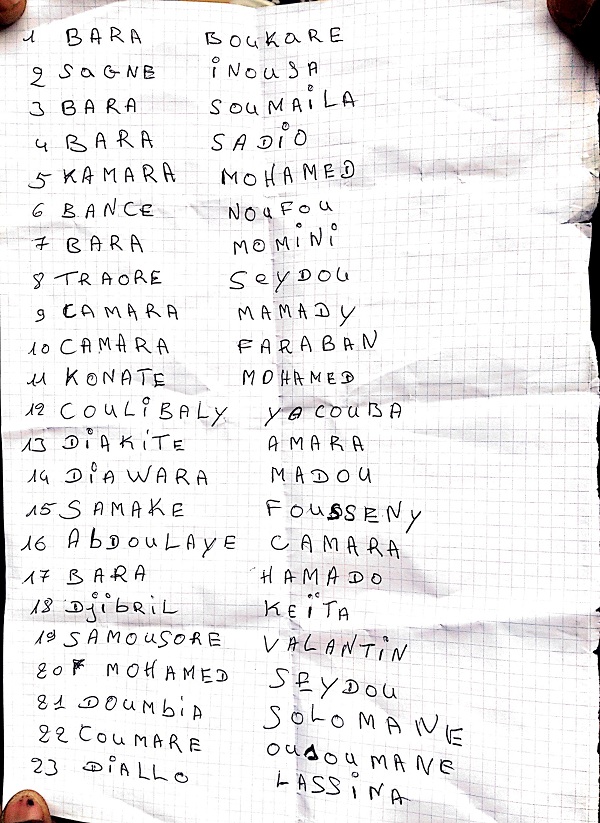 1 BARA BOUKARE
2 SAGNE iNOUSA
3 BARA SOUMAiLA
4 BARA SADiO
5 KAMARA MOHAMED
6 BANCE NOUFOU
7 BARA MOMiNi
8 TRAORE SEYDOU
9 CAMARA MAMADY
10 CAMARA FARABAN
11 KONATE MOHAMED
12 COULiBALY YACOUBA
13 DiAKiTE AMARA
14 DiAWARA MADOU
15 SAMAKE FOUSSENY
16 AbDOULAYE CAMARA
17 BARA HAMADO
18 DjibRiL KEÏTA
19 SAMOUSORE VALANTiN
20 MOHAMED SEYDOU
21 DOUMbiA SOLOMANE
22 COUMARE OUSOUMANE
23 DiALLO LASSiNA